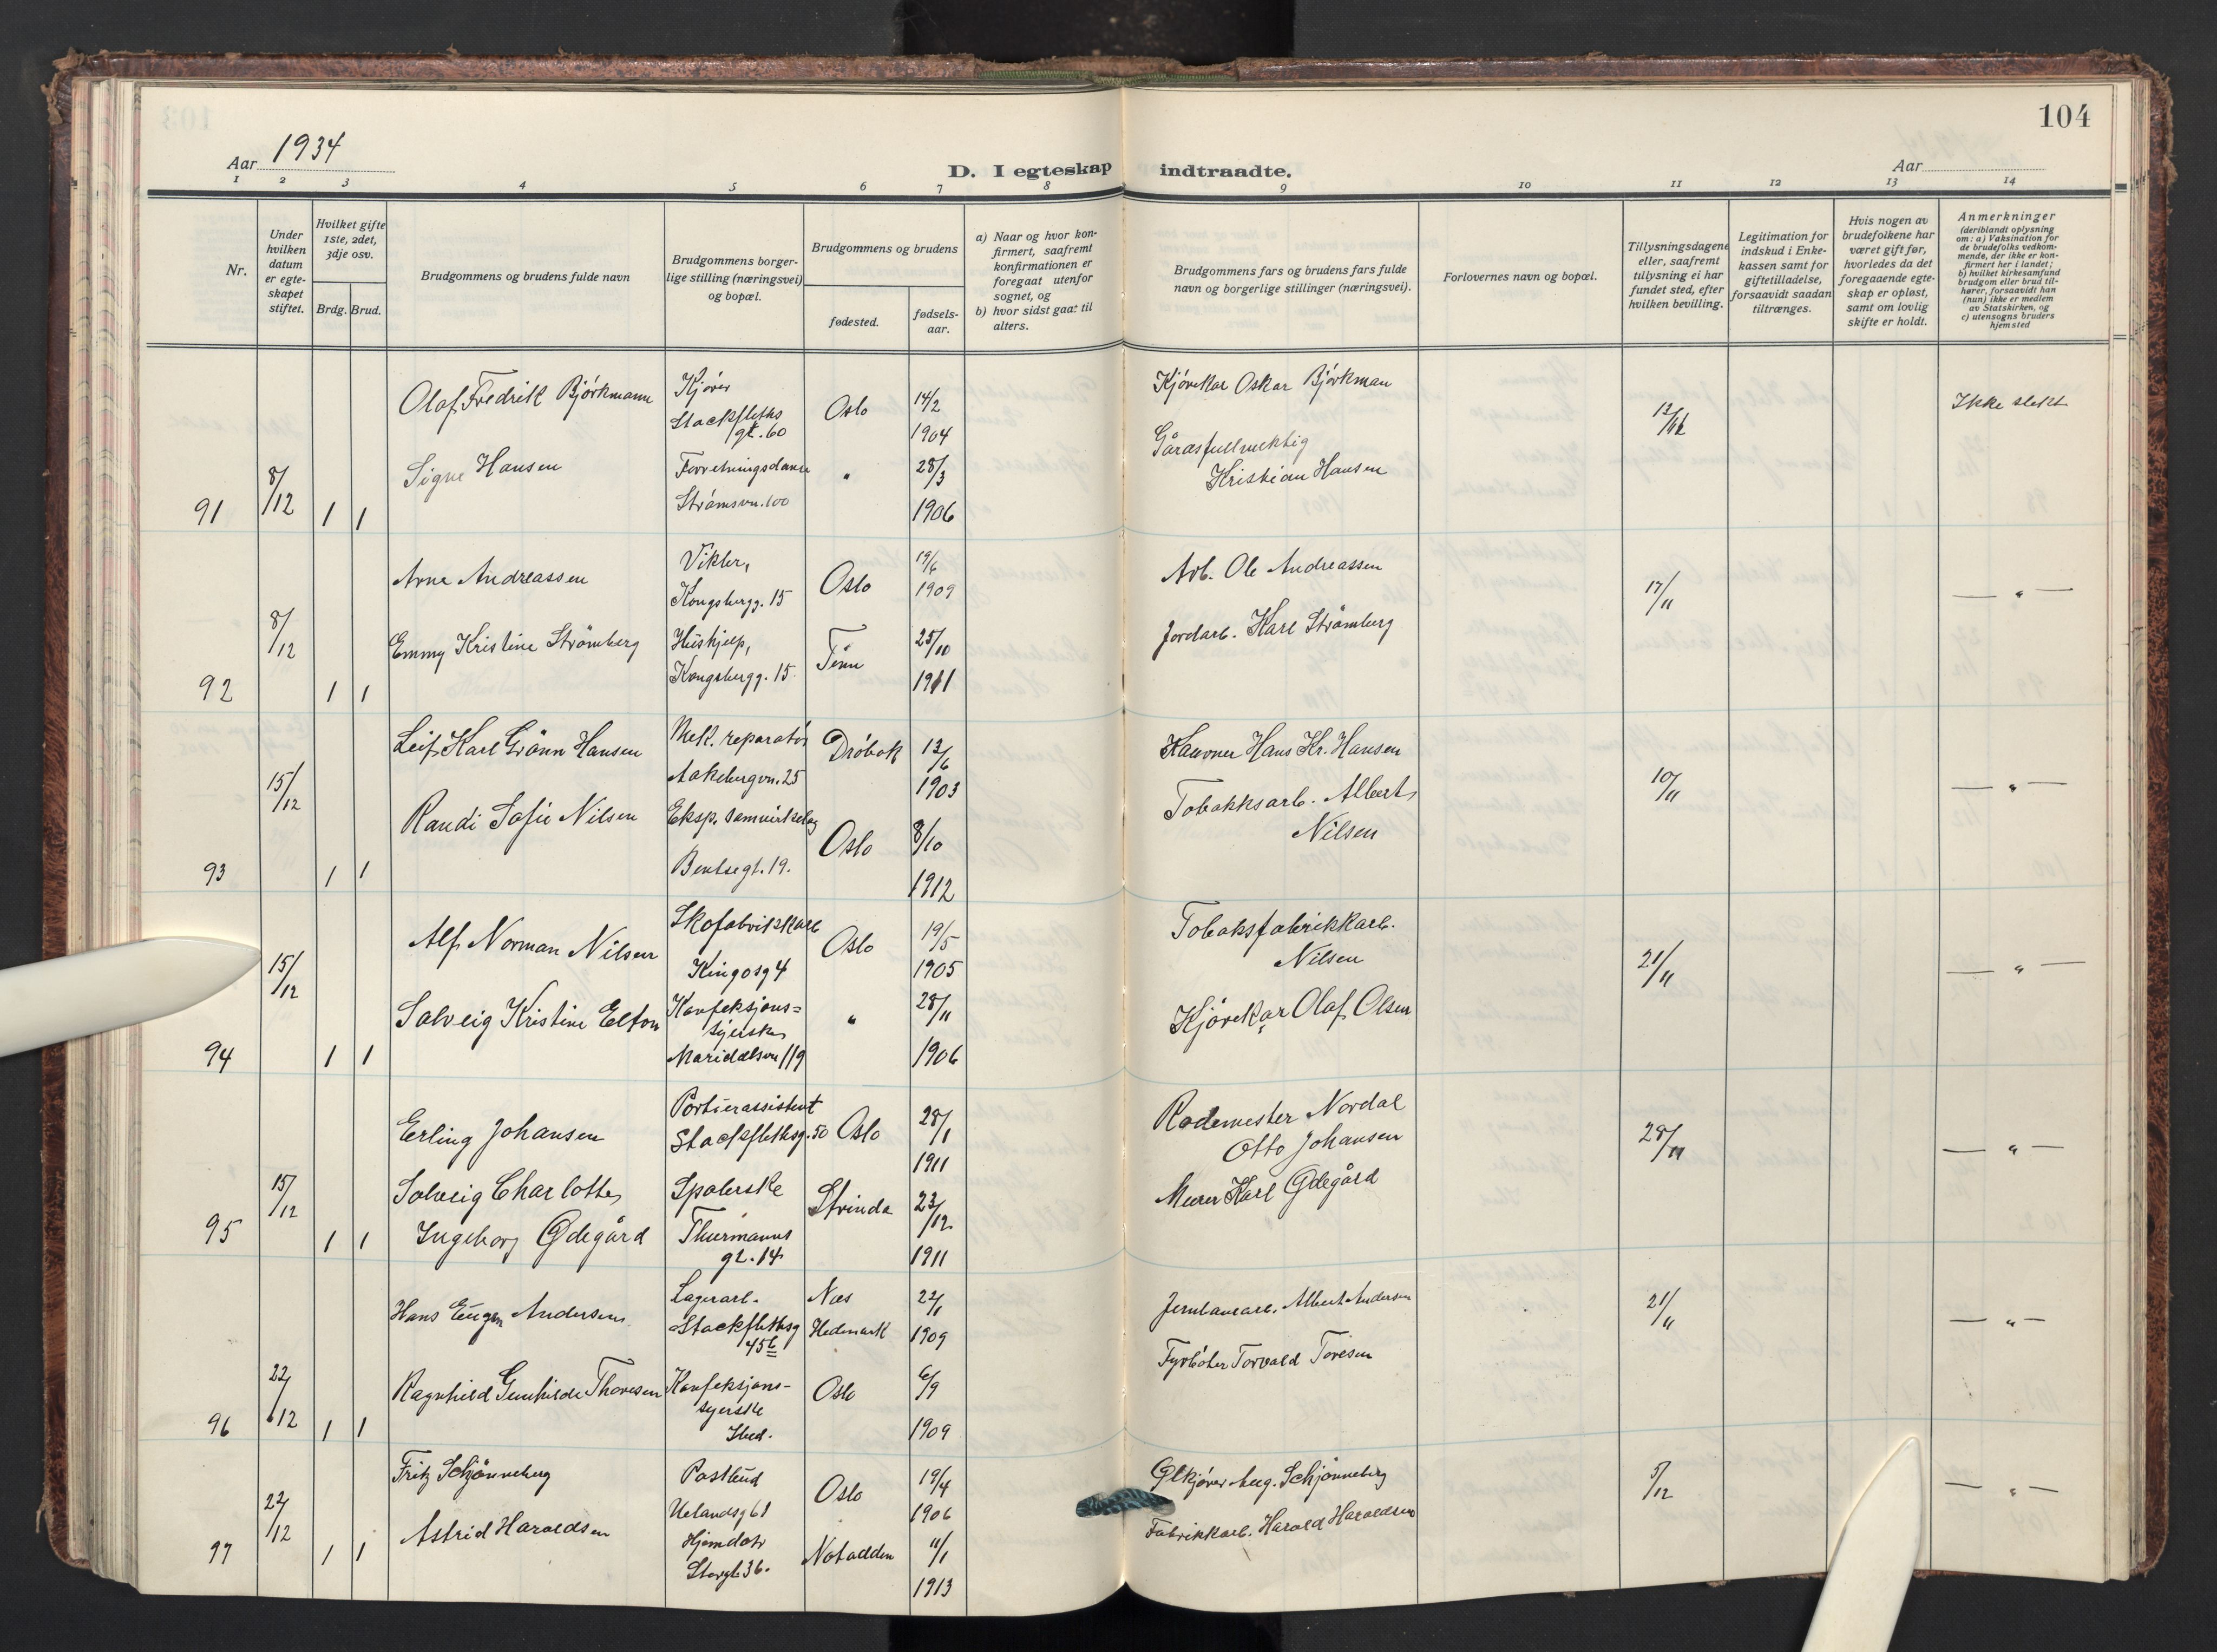 104
Aar 1934
D. I egteskap indtraadte.
Aar
1 2 3 4 5 6 7 8 9 10 11 12 13 14
Nr.
Under hvilken datum er egte- skapet stiftet.
Hvilket gifte 1ste, 2det, 3dje osv.
Brdg. Brud.
Brudgommens og brudens fulde navn
Brudgommens borger- lige stilling (næringsvei) og bopæl.
Brudgommens og brudens
fødested.
fødsels- aar.
a) Naar og hvor kon- firmert, saafremt konfirmationen er foregaat utenfor sognet, og
b) hvor sidst gaat til alters.
Brudgommens fars og brudens fars fulde navn og borgerlige stillinger (næringsvei).
Forlovernes navn og bopæl.
Tillysningsdagene eller, saafremt tillysning ei har fundet sted, efter hvilken bevilling.
Legitimation for indskud i Enke- kassen samt for giftetilladelse, forsaavidt saadan tiltrænges.
Hvis nogen av brudefolkene har været gift før, hvorledes da det foregaaende egte- skap er opløst, samt om lovlig skifte er holdt.
Anmerkninger (deriblandt oplysning om: a) Vaksination for de brudefolks vedkom- mende, der ikke er kon- firmert her i landet; b) hvilket kirkesamfund brudgom eller brud til- hører, forsaavidt han (hun) ikke er medlem av Statskirken, og c) utensogns bruders hjemsted
Olaf Fredrik Björkmann
Kjører
Stockfleths gt. 60
Oslo
14/2
1904
Kjörekar Oskar Björkman
Ikke slekt
91
8/12
1 1
Signe Hansen
Forretningsdame
Strömsvn. 100
"
28/3
1906
Kristian Hansen
Arne Andreassen
Vikler,
Kongsbergg. 15
Oslo
19/6
1909
Arb. Ole Andreassen
17/11
— " —
92
8/12
1 1
Emmy Kristine Strömberg
Hushjelp,
Kongsbergg. 15
Tinn
25/10
1911
Jordarb. Karl Strömberg
Leif Karl Grönn Hansen
Mek. reparatör
Aakebergvn. 25
Dröbak
13/6
1903
Hans Kr. Hansen
10/11
— " —
93
15/12
1 1
Randi Sofie Nilsen
Eksp. Samvirkelag
Bentsegt. 19.
Oslo
8/10
1912
Tobakksarb. Albert
Nilsen
Alf Norman Nilsen
Skofabrikkarb
Kingosg 4
Oslo
19/5
1905
Tobaksfabrikkarb.
Nilsen
21/11
— " —
94
15/12
1 1
Solveig Kristine Elton
Konfeksjons=
syerske
Maridalsvn 119
"
28/11
1906
Kjörekar Olaf Olsen
Erling Johansen
Portierassistent
Stockflethsg. 50
Oslo
28/1
1911
Rodemester Nordal
Otto Johansen
28/11
— " —
95
15/12
1 1
Solveig Charlotte
Ingeborg Ødegård
Spolerske
Thurmanns
gt. 14
Strinda
23/12
1911
Murer Karl Ødegård
Hans Eugen Andersen
Lagerarb.
Stockflethsg
45b
Nes
Hedmark
22/1
1909
Albert Andersen
21/11
— " —
96
22/12
1 1
Ragnhild Gunhilde Thoresen
Konfeksjons-
syerske
Ibid.
Oslo
6/9
1909
Fyrböter Torvald Toresen
Fritz Schjönneberg
Postbud
Uelandsg 61
Oslo
19/4
1906
Ølkjörer Aug. Schjönneberg
5/12
— " —
97
22/12
1 1
Astrid Haroldsen
Hjemdotr
Storgt. 36.
Notodden
11/1
1913
Fabrikkarb. Harald Haraldsen